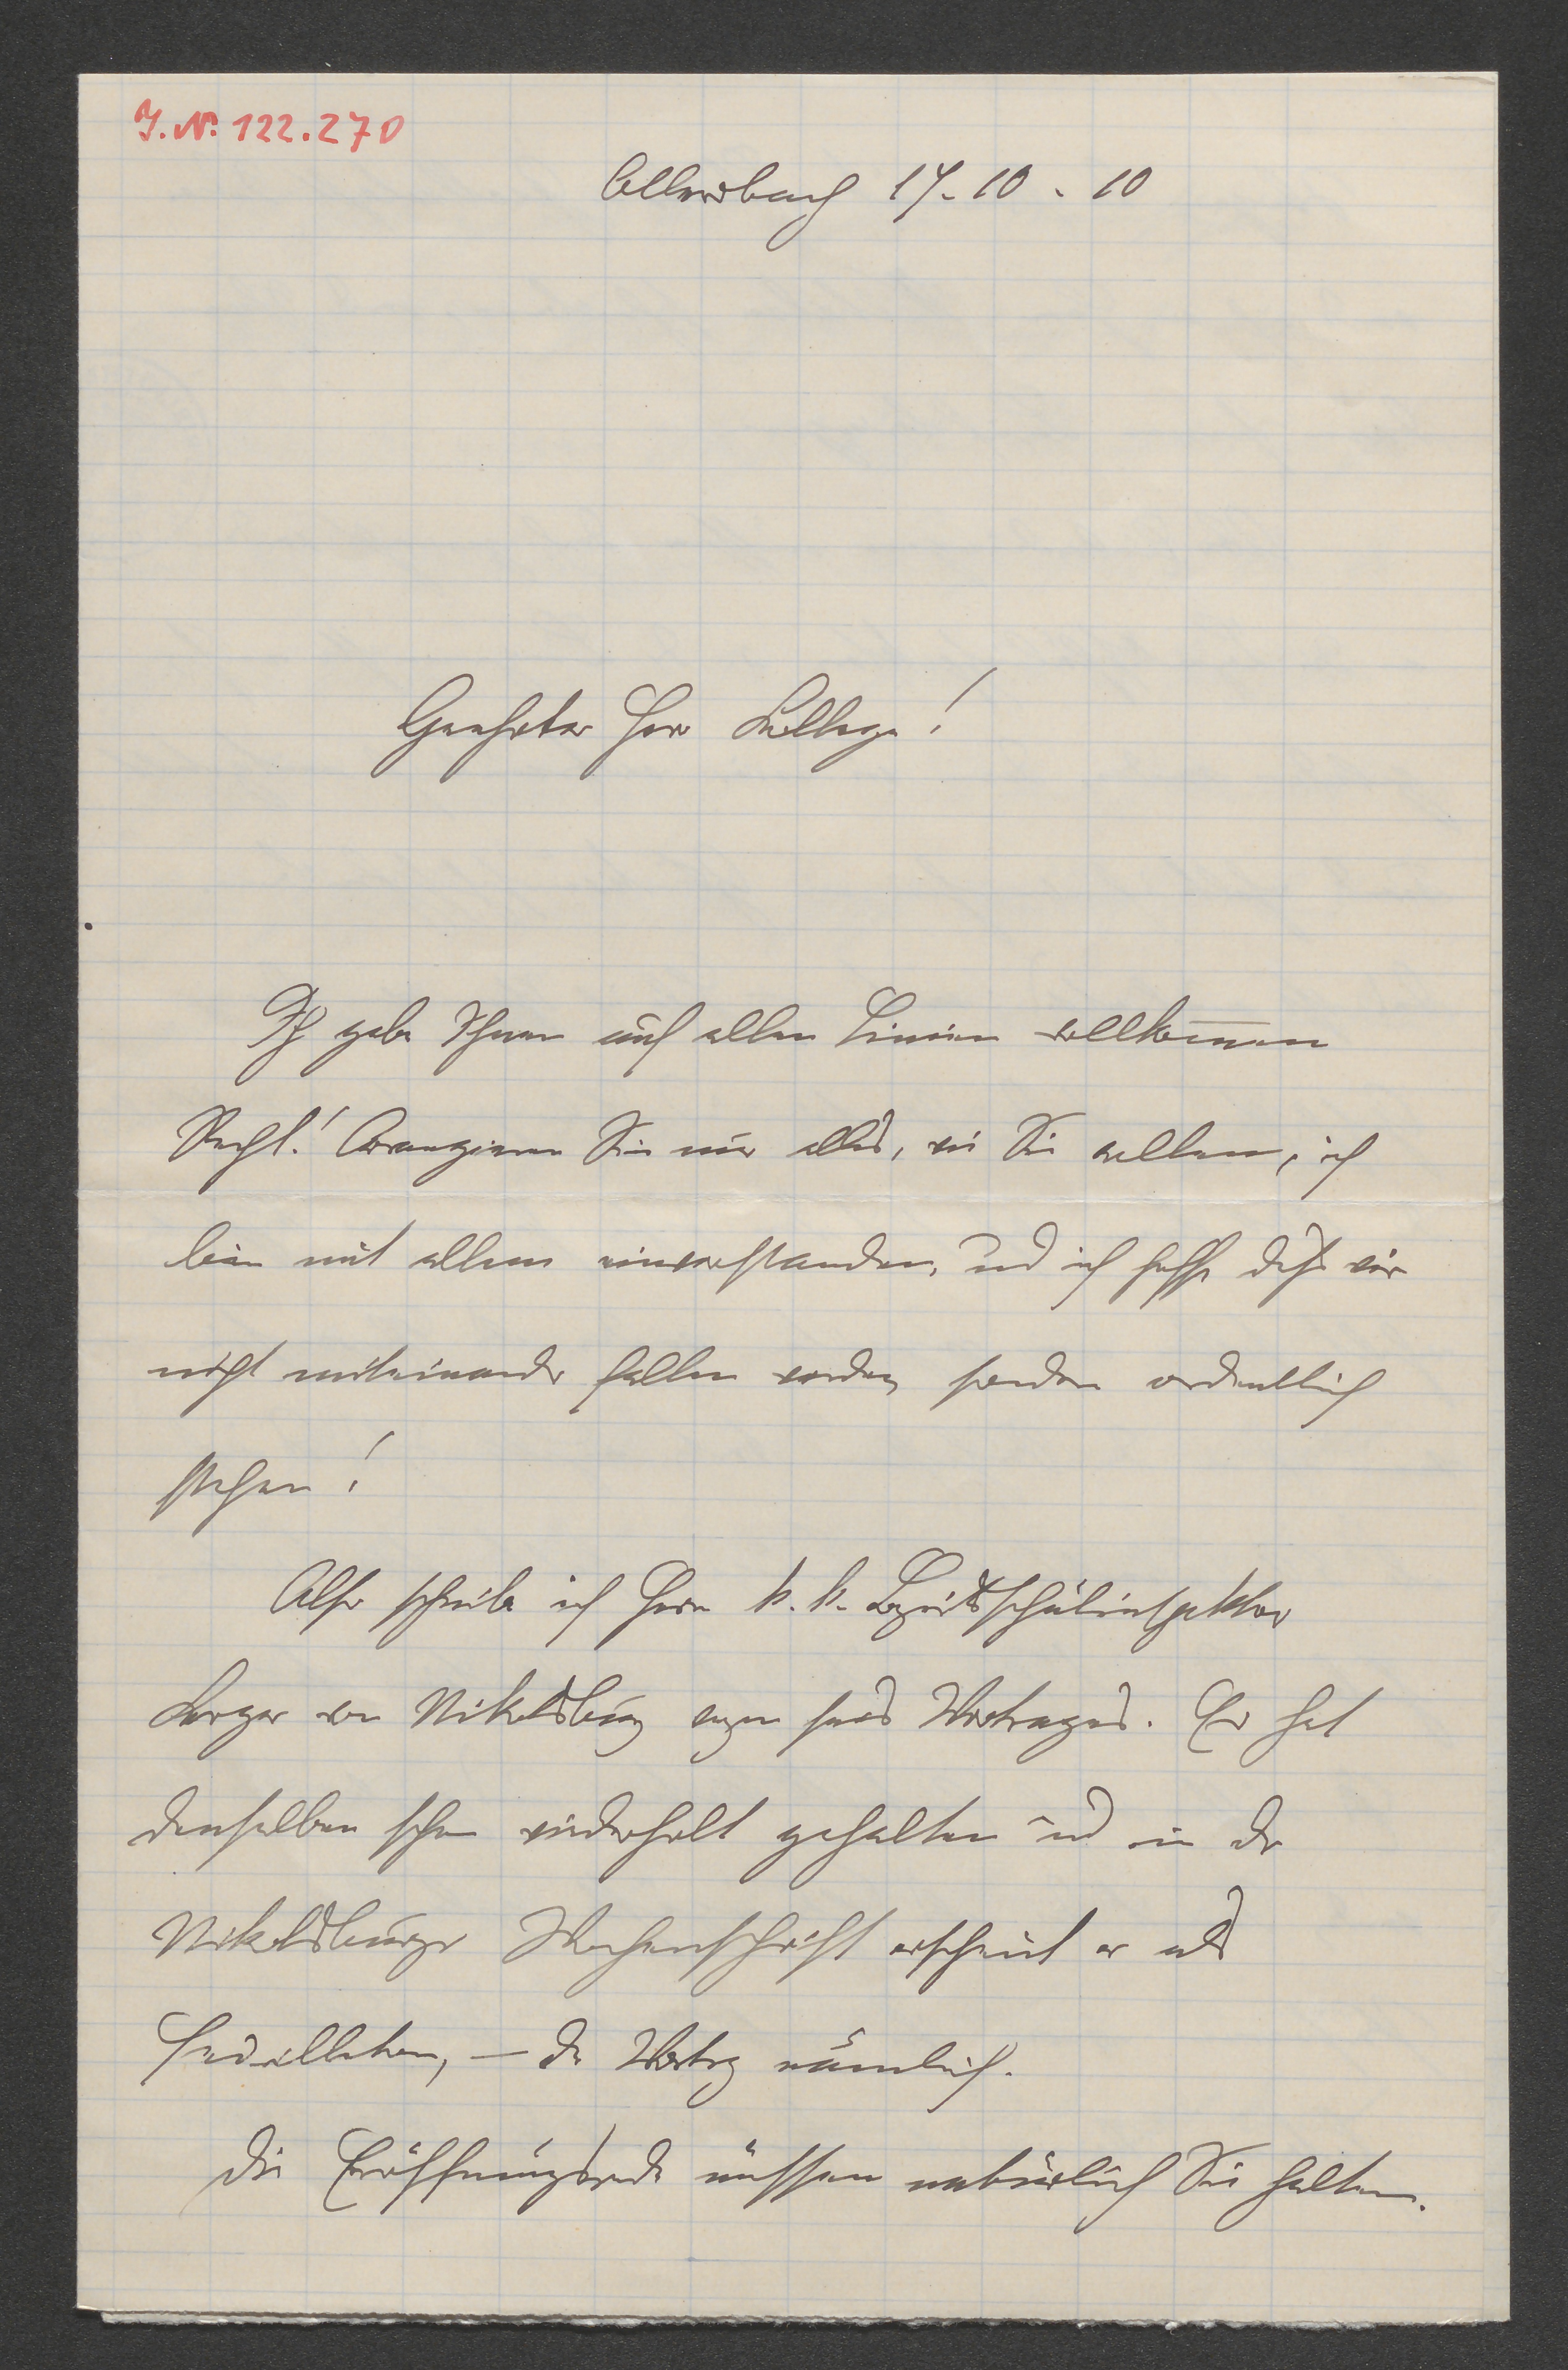 I. N: 122.270
Ollersbach 14-10-10
Geehrter Herr Kollege!
Ich gebe Ihnen auf allen Linien vollkommen
Recht! Arrangieren Sie nur alles, wie Sie wollen, ich
bin mit allem einverstanden, und ich hoffe daß wir
nicht miteinander fallen werden, sondern ordentlich
stehen!
Also schreibe ich Herrn k. k. Bezirksschulinspektor
von Nikolsburg wegen seines Vortrages. Er hat
denselben schon wiederholt gehalten und in der
Nikolsburger Wochenschrift erscheint er als
Feuilleton, – der Vortrag nämlich.
Die Eröffnungsrede müssen natürlich Sie halten.